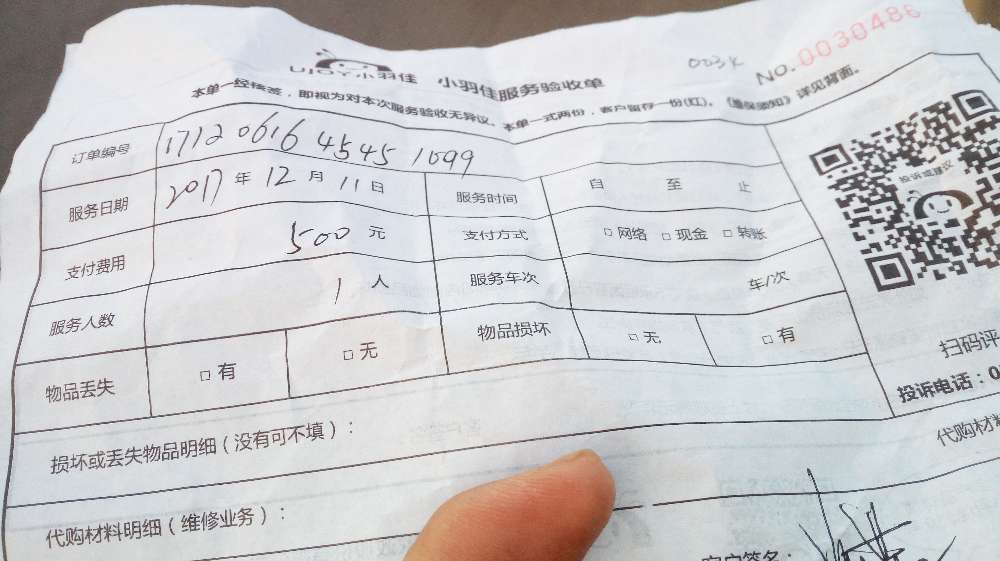 UJOY小羽佳 小羽佳服务验收单 003K NO.0030486
本单一经核签，即视为对本次服务验收无异议。本单一式两份，客户留存一份(红)。《 》详见背面。
订单编号 17120616 4545 1099
服务日期 2017年12月11日 服务时间 自 至 止
支付费用 500元 支付方式 □网络 □现金 □转账
服务人数 1人 服务车次 车/次
物品丢失 □有 □无 物品损坏 □无 □有
投诉或建议
扫码评
投诉电话：0
损坏或丢失物品明细（没有可不填）：
代购材料
代购材料明细（维修业务）：
客户签名：